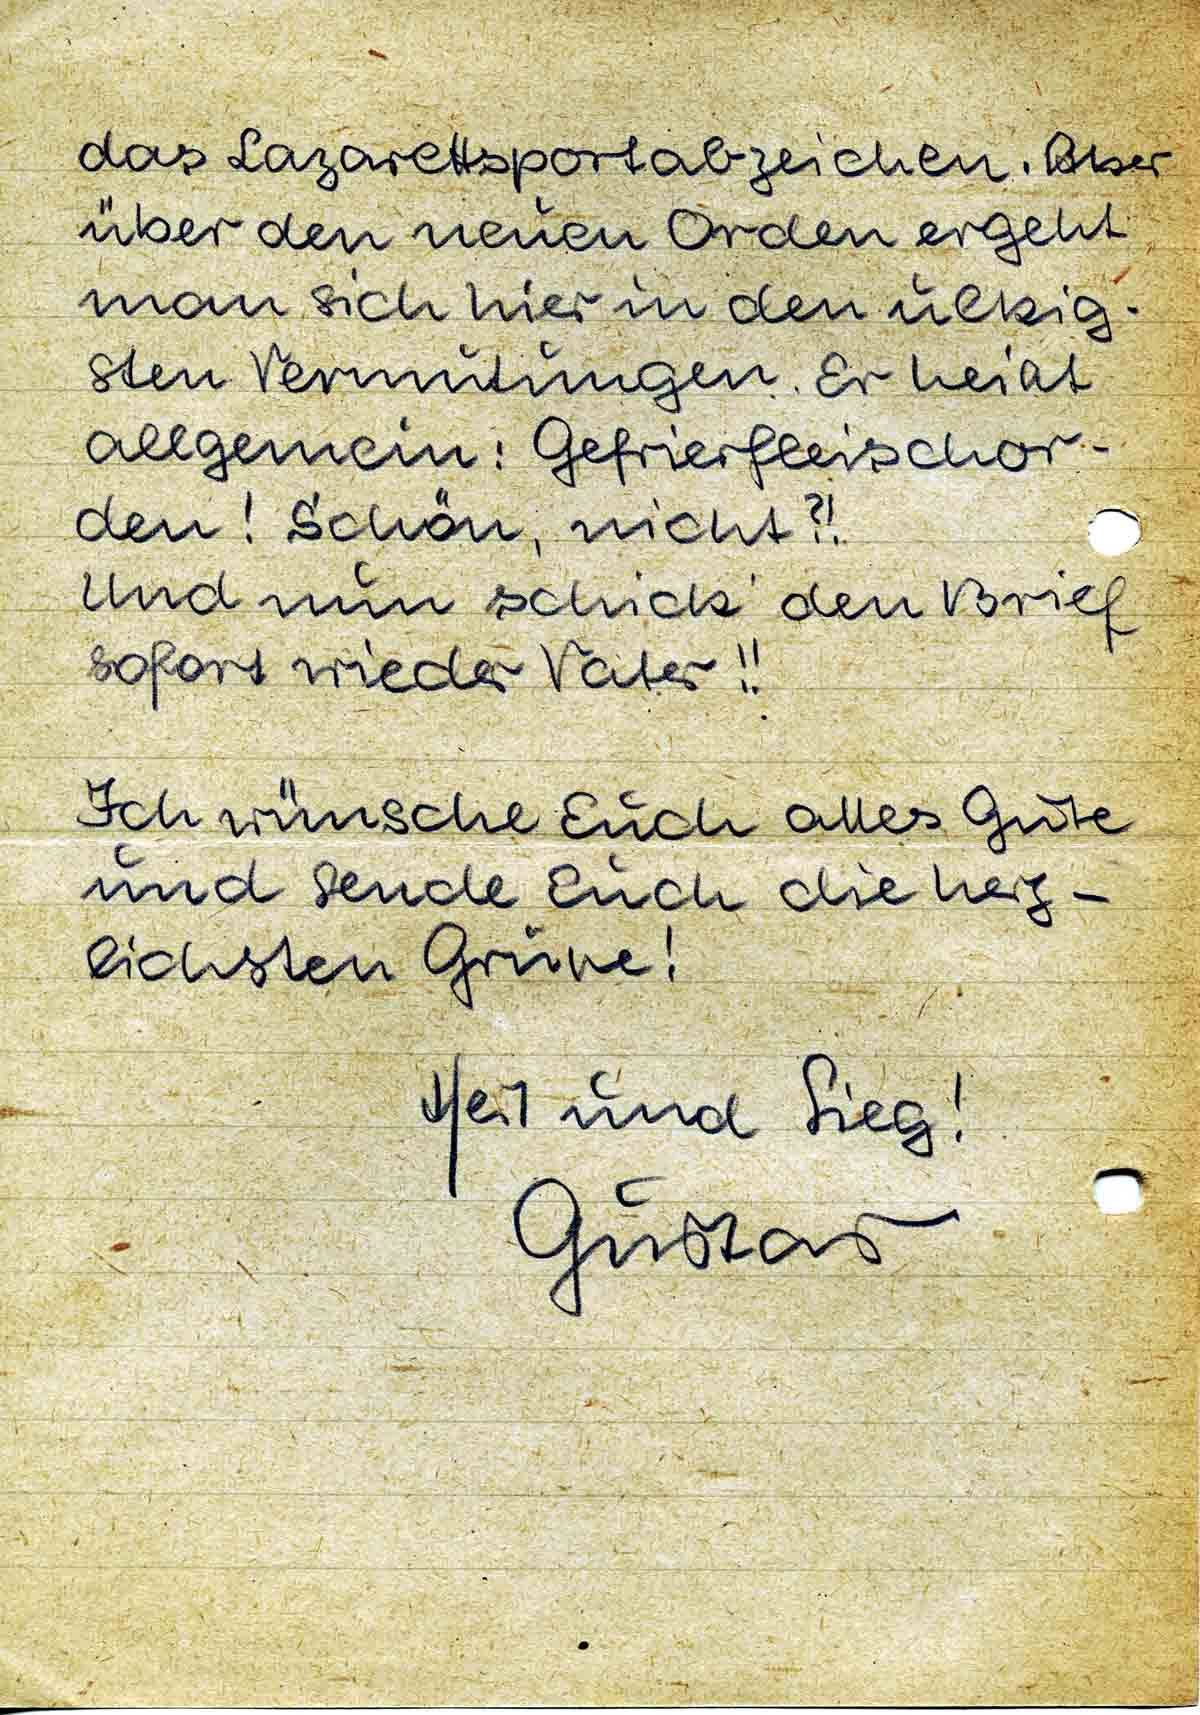 das Lazarettsportabzeichen. Aber
über den neuen Orden ergeht
man sich hier in den ulkig-
sten Vermutungen. Er heißt
allgemein: Gefrierfleischor-
den! Schön, nicht?!
Und nun schick' den Brief
sofort wieder Vater!!
Ich wünsche Euch alles Gute
und sende Euch die herz-
lichsten Grüße!
Heil und Sieg!
Gustav